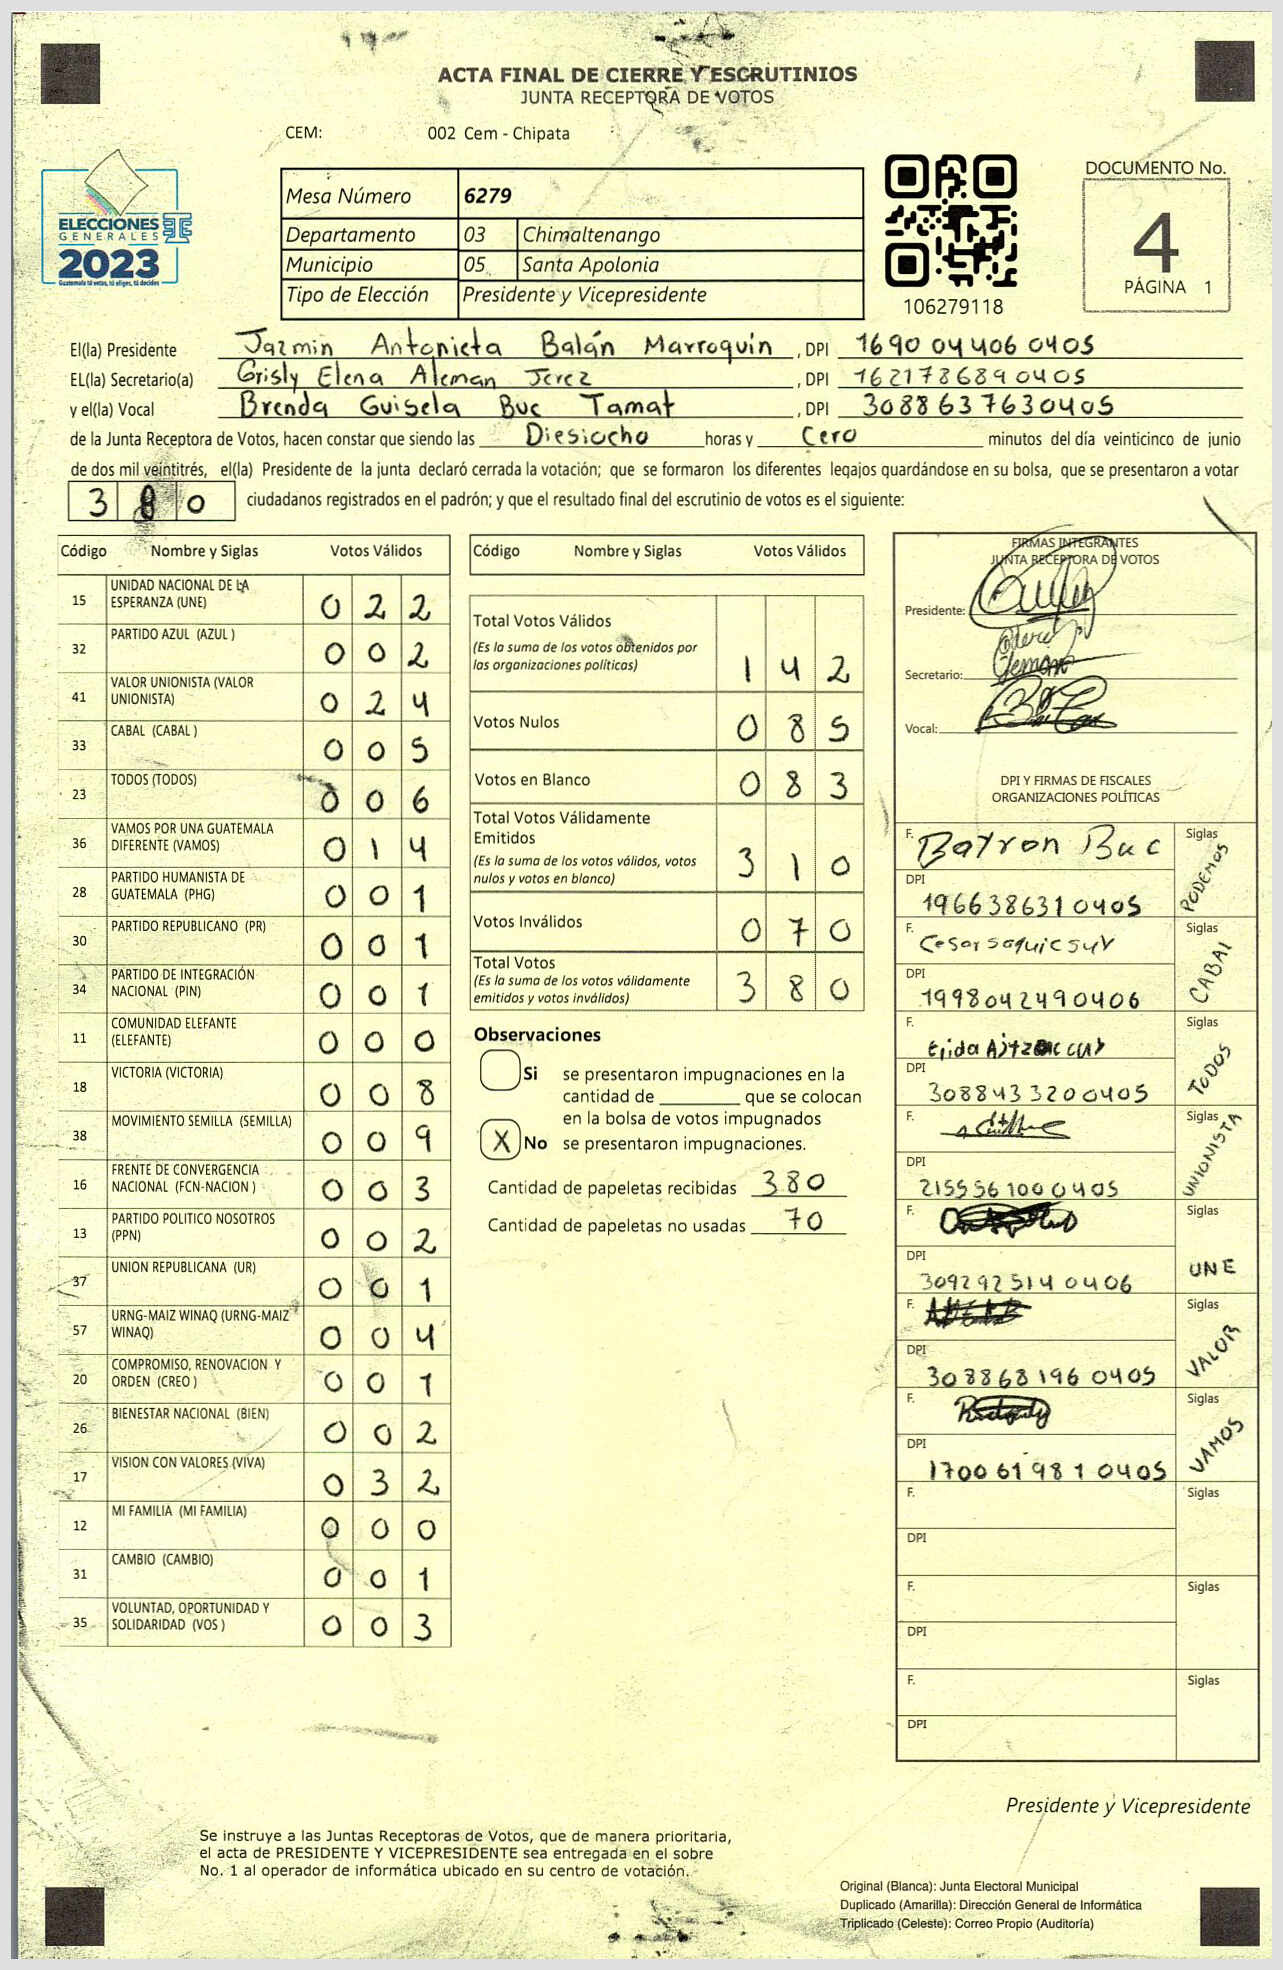 ACTA FINAL DE CIERRE Y ESCRUTINIOS
JUNTA RECEPTORA DE VOTOS
CEM: 002 Cem - Chipata
ELECCIONES
GENERALES
2023
Guatemala tú votas, tú eliges, tú decides
Mesa Número 6279
Departamento 03 Chimaltenango
Municipio 05 Santa Apolonia
Tipo de Elección Presidente y Vicepresidente
106279118
DOCUMENTO No.
4
PÁGINA 1
El(la) Presidente Jazmin Antonieta Balán Marroquín, DPI 1690 04406 0405
EL(la) Secretario(a) Grisly Elena Aleman Jerez, DPI 1621786890405
y el(la) Vocal Brenda Guisela Buc Tamat, DPI 3088637630405
de la Junta Receptora de Votos, hacen constar que siendo las Diesiocho horas y Cero minutos del día veinticinco de junio
de dos mil veintitrés, el(la) Presidente de la junta declaró cerrada la votación; que se formaron los diferentes legajos guardándose en su bolsa, que se presentaron a votar
380 ciudadanos registrados en el padrón; y que el resultado final del escrutinio de votos es el siguiente:
Código Nombre y Siglas Votos Válidos
15 UNIDAD NACIONAL DE LA ESPERANZA (UNE) 0 2 2
32 PARTIDO AZUL (AZUL ) 0 0 2
41 VALOR UNIONISTA (VALOR UNIONISTA) 0 2 4
33 CABAL (CABAL ) 0 0 5
23 TODOS (TODOS) 0 0 6
36 VAMOS POR UNA GUATEMALA DIFERENTE (VAMOS) 0 1 4
28 PARTIDO HUMANISTA DE GUATEMALA (PHG) 0 0 1
30 PARTIDO REPUBLICANO (PR) 0 0 1
34 PARTIDO DE INTEGRACIÓN NACIONAL (PIN) 0 0 1
11 COMUNIDAD ELEFANTE (ELEFANTE) 0 0 0
18 VICTORIA (VICTORIA) 0 0 8
38 MOVIMIENTO SEMILLA (SEMILLA) 0 0 9
16 FRENTE DE CONVERGENCIA NACIONAL (FCN-NACION ) 0 0 3
13 PARTIDO POLITICO NOSOTROS (PPN) 0 0 2
37 UNION REPUBLICANA (UR) 0 0 1
57 URNG-MAIZ WINAQ (URNG-MAIZ WINAQ) 0 0 4
20 COMPROMISO, RENOVACION Y ORDEN (CREO ) 0 0 1
26 BIENESTAR NACIONAL (BIEN) 0 0 2
17 VISION CON VALORES (VIVA) 0 3 2
12 MI FAMILIA (MI FAMILIA) 0 0 0
31 CAMBIO (CAMBIO) 0 0 1
35 VOLUNTAD, OPORTUNIDAD Y SOLIDARIDAD (VOS ) 0 0 3
Código Nombre y Siglas Votos Válidos
Total Votos Válidos
(Es la suma de los votos obtenidos por
las organizaciones políticas) 1 4 2
Votos Nulos 0 8 5
Votos en Blanco 0 8 3
Total Votos Válidamente
Emitidos
(Es la suma de los votos válidos, votos
nulos y votos en blanco) 3 1 0
Votos Inválidos 0 7 0
Total Votos
(Es la suma de los votos válidamente
emitidos y votos inválidos) 3 8 0
Observaciones
Si se presentaron impugnaciones en la
cantidad de ________ que se colocan
en la bolsa de votos impugnados
X No se presentaron impugnaciones.
Cantidad de papeletas recibidas 380
Cantidad de papeletas no usadas 70
FIRMAS INTEGRANTES
JUNTA RECEPTORA DE VOTOS
Presidente:
Secretario:
Vocal:
DPI Y FIRMAS DE FISCALES
ORGANIZACIONES POLÍTICAS
F. Bayron Buc Siglas PODEMOS
DPI 1966386310405
F. Cesar saquic suy Siglas CABAL
DPI 1998042490406
F. Siglas TODOS
DPI 3088433200405
F. Siglas UNIONISTA
DPI 2155561000405
F. Siglas UNE
DPI 3092925140406
F. Siglas VALOR
DPI 3088681960405
F. Siglas VAMOS
DPI 1700619810405
F. Siglas
DPI
F. Siglas
DPI
F. Siglas
DPI
Presidente y Vicepresidente
Se instruye a las Juntas Receptoras de Votos, que de manera prioritaria,
el acta de PRESIDENTE Y VICEPRESIDENTE sea entregada en el sobre
No. 1 al operador de informática ubicado en su centro de votación.
Original (Blanca): Junta Electoral Municipal
Duplicado (Amarilla): Dirección General de Informática
Triplicado (Celeste): Correo Propio (Auditoría)